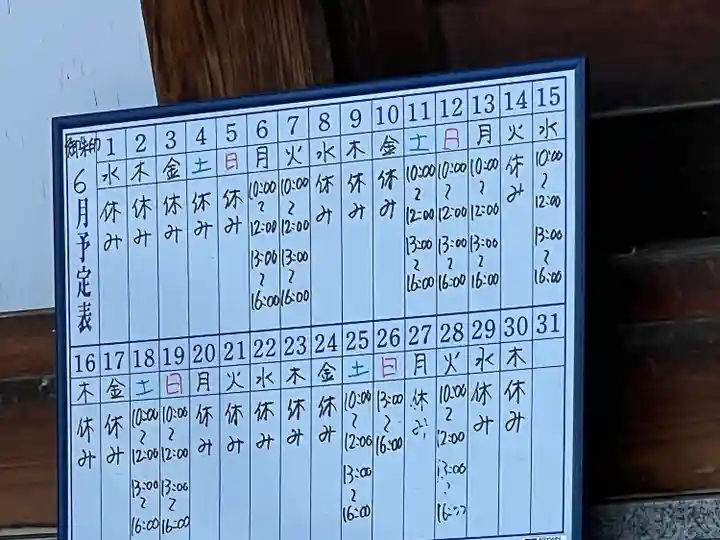 御朱印
6月予定表
1 2 3 4 5 6 7 8 9 10 11 12 13 14 15
水 木 金 土 日 月 火 水 木 金 土 日 月 火 水
休み 休み 休み 休み 休み 10:00〜12:00 13:00〜16:00 10:00〜12:00 13:00〜16:00 休み 休み 休み 10:00〜12:00 13:00〜16:00 10:00〜12:00 13:00〜16:00 10:00〜12:00 13:00〜16:00 休み 10:00〜12:00 13:00〜16:00
16 17 18 19 20 21 22 23 24 25 26 27 28 29 30 31
木 金 土 日 月 火 水 木 金 土 日 月 火 水 木
休み 休み 10:00〜12:00 13:00〜16:00 10:00〜12:00 13:00〜16:00 休み 休み 休み 休み 休み 10:00〜12:00 13:00〜16:00 13:00〜16:00 休み 10:00〜12:00 13:00〜16:00 休み 休み